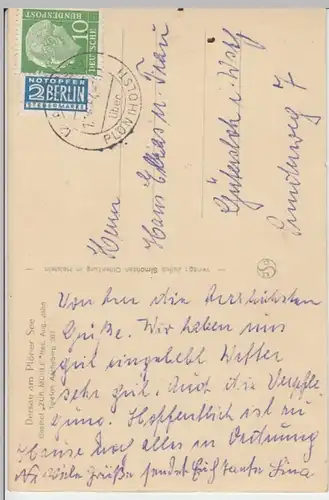 DEUTSCHE BUNDESPOST
10
NOTOPFER
2 BERLIN
STEUERMARKE
über
PLÖN (HOLST)
Herrn
Hans Elias u. Frau
Gütersloh i. Westf
7
Dersau am Plöner See
Gasthof „ZUR MÜHLE" Bes. Aug.
Telefon Ascheberg 307
Verlag: Julius Simonsen Oldenburg in Holstein
Von hier die herzlichsten
Grüße. Wir haben uns
gut eingelebt. Wetter
sehr gut. Auch die Verpfle
gung. Hoffentlich ist zu
Hause noch alles in Ordnung
Viele Grüße sendet Euch Tante Lina